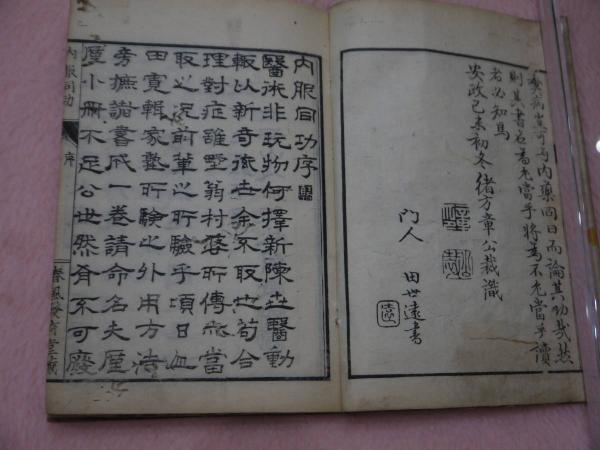 病豈可与内藥同日而論其功哉然
則其書名允當乎將為不允當乎讀
者必知焉
安政己未初冬緒方章公裁識
門人 田世遠書
内服同功序
醫術非玩物何擇新陳世醫動
輒以新奇衒世余不取也苟合
理對症雖墅翁村落所傳亦當
取之況前輩之所驗乎頃日
田寛輯家塾所驗之外用方法
旁摭諸書成一卷請命名夫區
區小冊不足公世然有不可廢
内服同功
序